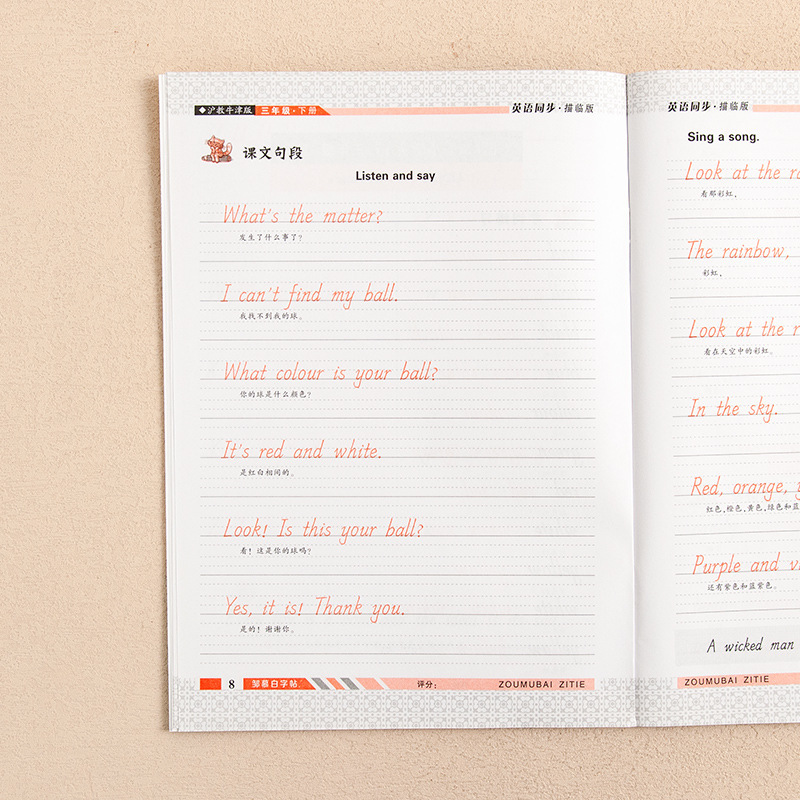 ◆沪教牛津版 三年级·下册
英语同步·描临版
课文句段
Listen and say
What's the matter?
发生了什么事了?
I can't find my ball.
我找不到我的球。
What colour is your ball?
你的球是什么颜色?
It's red and white.
是红白相间的。
Look! Is this your ball?
看!这是你的球吗?
Yes, it is! Thank you.
是的!谢谢你。
8 邹慕白字帖 评分: ZOUMUBAI ZITIE
英语同步·描临版
Sing a song.
Look at the
看那彩虹,
The rainbow,
彩虹,
Look at the
看在天空中的彩虹。
In the sky.
Red, orange,
红色,橙色,黄色,绿色和
Purple and
还有紫色和蓝紫色。
A wicked man
ZOUMUBAI ZITIE